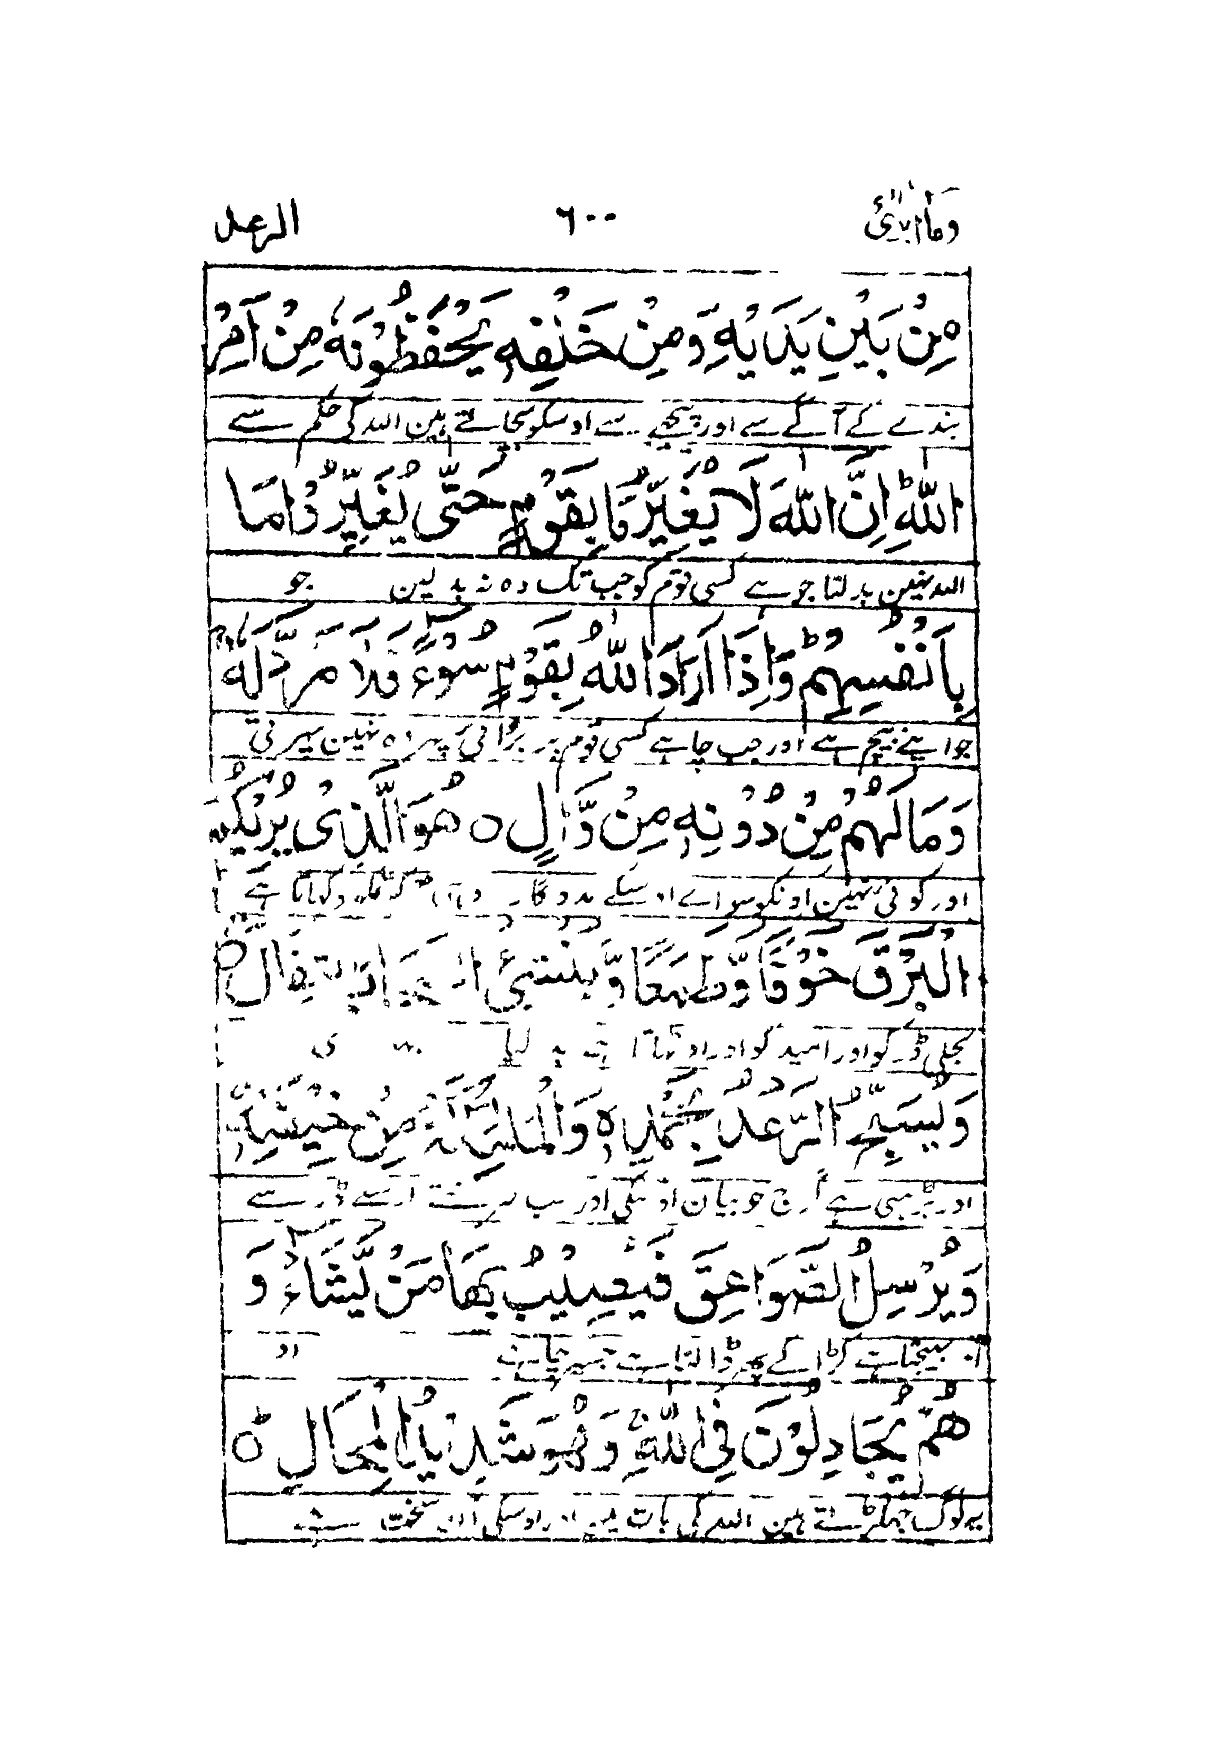 وما ابرئ ٦٠٠ الرعد
مِنْۢ بَيْنِ يَدَيْهِ وَمِنْ خَلْفِهٖ يَحْفَظُوْنَهٗ مِنْ اَمْرِ
بندے کے آگے سے اور پیچھے سے اوسکو بچاتے ہین اللہ کی حکم سے
اللّٰهِ ؕ اِنَّ اللّٰهَ لَا يُغَيِّرُ مَا بِقَوْمٍ حَتّٰى يُغَيِّرُوْا مَا
اللہ نہین بدلتا جو ہے کسی قوم کو جب تک وہ نہ بدلین جو
بِاَنْفُسِهِمْ ؕ وَاِذَاۤ اَرَادَ اللّٰهُ بِقَوْمٍ سُوْٓءً فَلَا مَرَدَّ لَهٗ
جو اپنے بیچ ہے اور جب چاہے کسی قوم پر برائی پہر وہ نہین پہرتی
وَمَا لَهُمْ مِّنْ دُوْنِهٖ مِنْ وَّالٍ ○ هُوَ الَّذِىْ يُرِيْكُمُ
اور کوئی نہین اونکو سواے اوسکے مددگار وہی دکہاتا ہے
الْبَرْقَ خَوْفًا وَّطَمَعًا وَّيُنْشِئُ السَّحَابَ الثِّقَالَ ○
بجلی ڈر کو اور امید کو اور اوٹہاتا ہے
وَيُسَبِّحُ الرَّعْدُ بِحَمْدِهٖ وَالْمَلٰٓئِكَةُ مِنْ خِيْفَتِهٖ
اور پڑہتی ہے گرج خوبیان اوسکی اور سب فرشتے اوسکے ڈر سے
وَيُرْسِلُ الصَّوَاعِقَ فَيُصِيْبُ بِهَا مَنْ يَّشَآءُ وَ
بہیجتا ہے کڑاکے پہر ڈالتا ہے جسپر چاہے اور
هُمْ يُجَادِلُوْنَ فِى اللّٰهِ ۚ وَهُوَ شَدِيْدُ الْمِحَالِ ○
یہ لوگ جہگڑتے ہین اللہ کی بات مین اور اوسکی آن سخت ہے